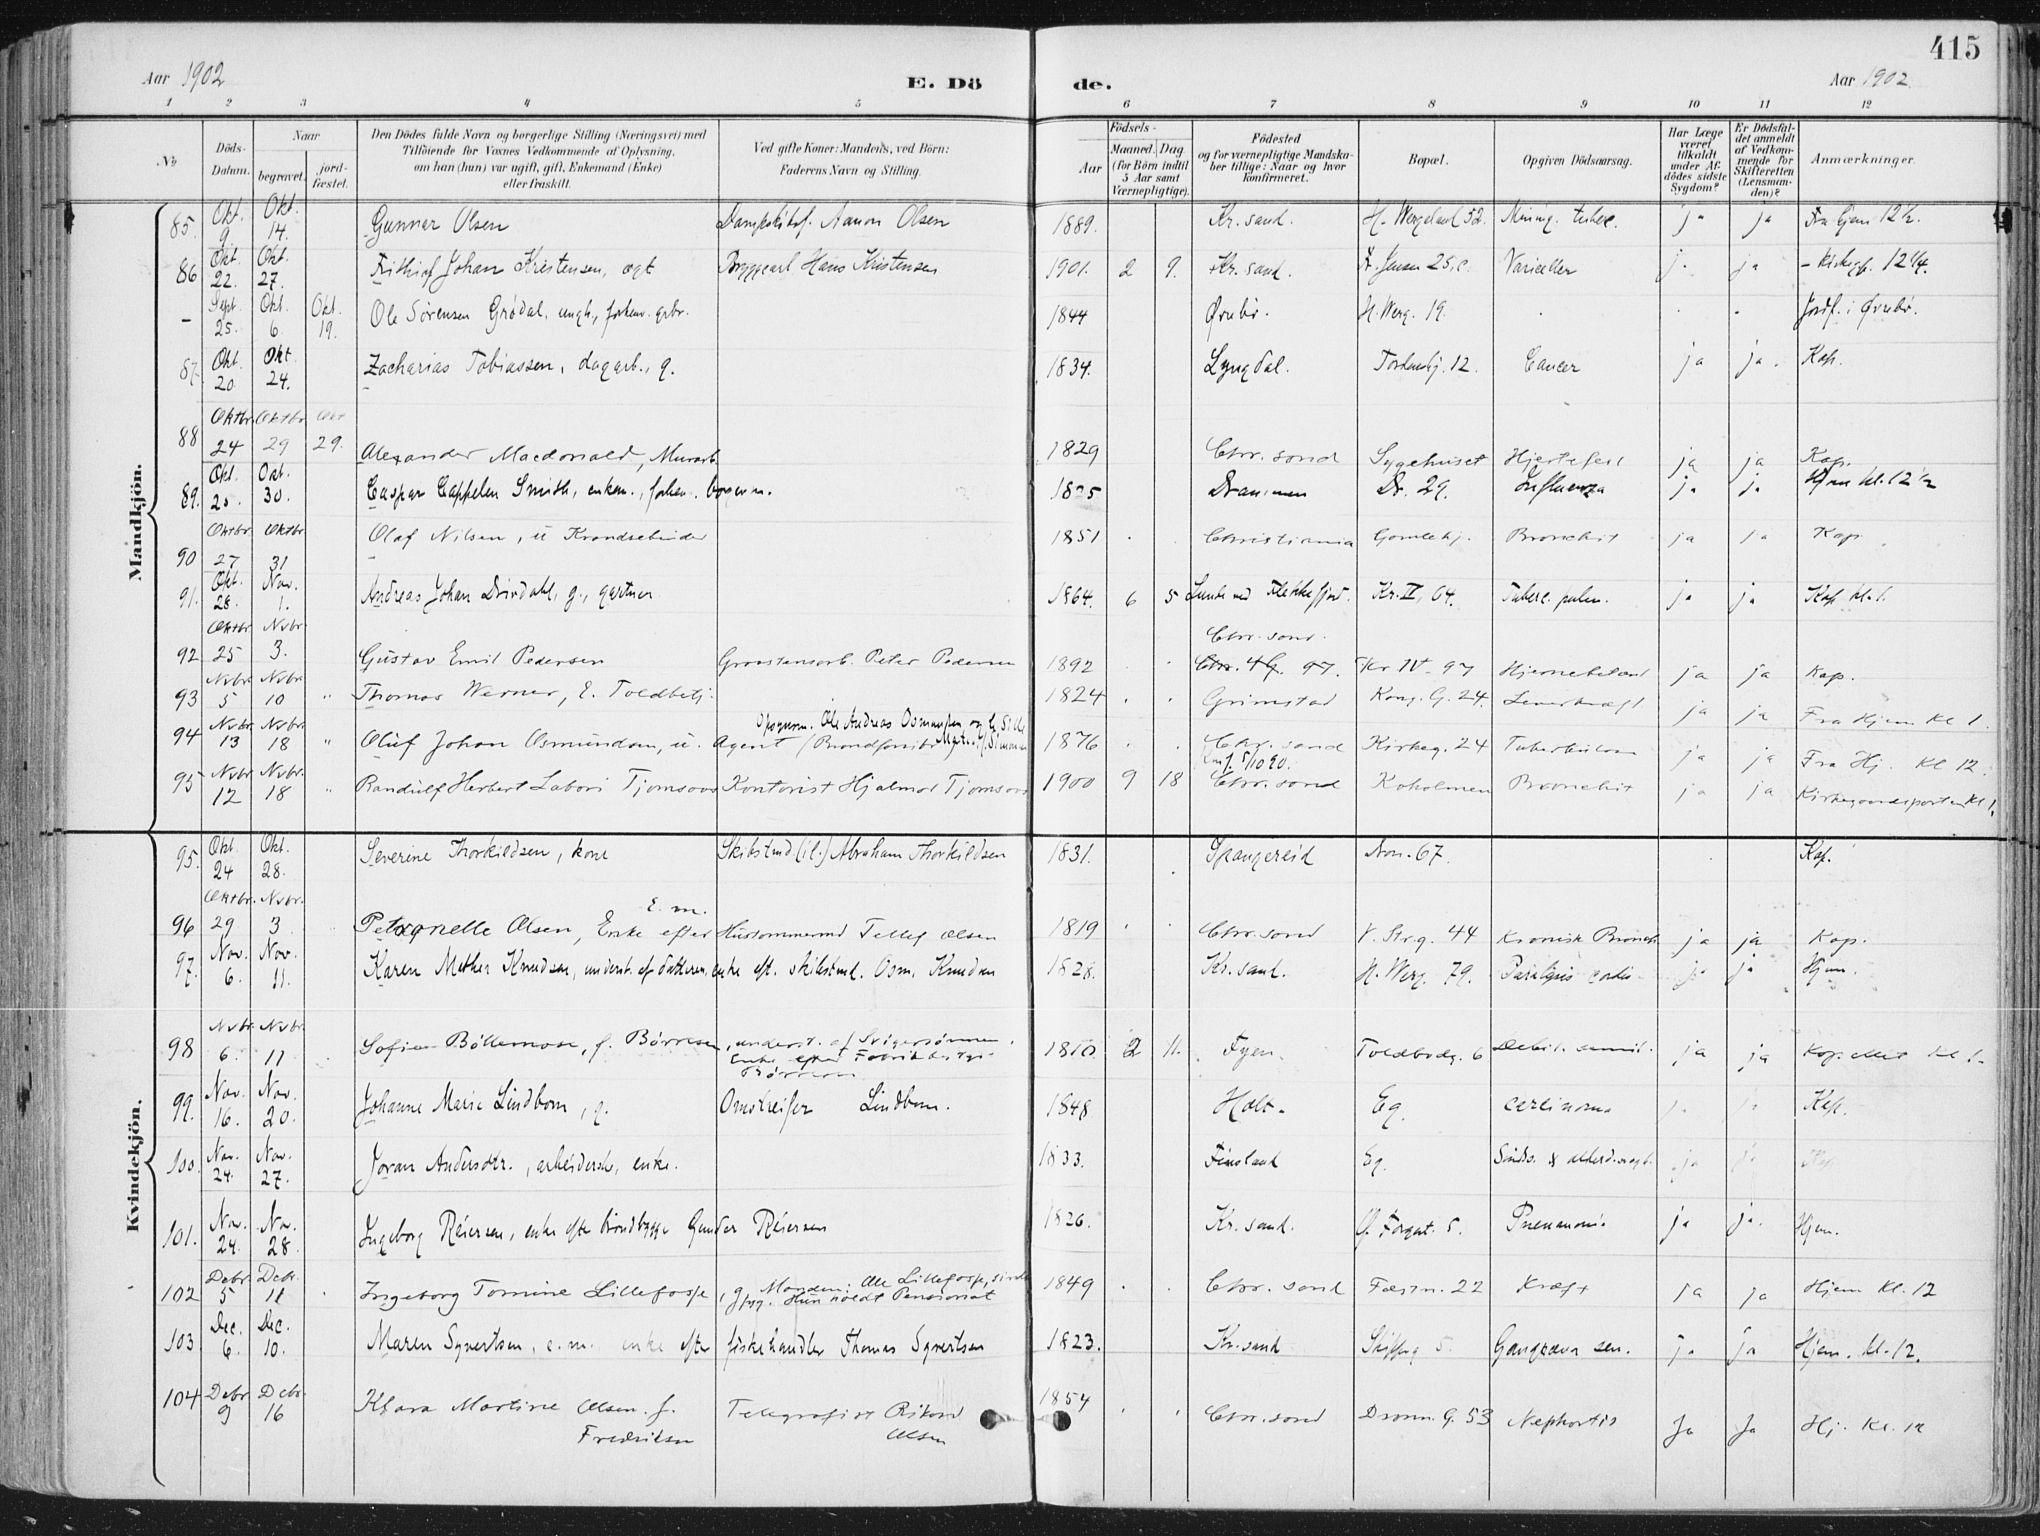 415
Aar 1902
E. Dö de.
Aar 1902.
1 2 3 4 5 6 7 8 9 10 11 12
No
Döds-Datum.
Naar begravet. jord-fæstet.
Den Dödes fulde Navn og borgerlige Stilling (Næringsvei) med
Tilföiende for Voxnes Vedkommende af Oplysning,
om han (hun) var ugift, gift, Enkemand (Enke)
eller fraskilt.
Ved gifte Koner: Mandens, ved Börn:
Faderens Navn og Stilling.
Födsels-
Aar Maaned. Dag.
(for Börn indtil 5 Aar samt Værnepligtige).
Födested
og for værnepligtige Mandska-
ber tillige: Naar og hvor
konfirmeret.
Bopæl.
Opgiven Dödsaarsag.
Har Læge været tilkaldt under Af-dödes sidste Sygdom?
Er Dödsfal-det anmeldt af Vedkom-mende for Skifteretten (Lensman-den)?
Anmærkninger.
Mandkjön.
85. Okt. 9 Okt. 14. Gunnar Olsen Aanon Olsen 1889. Kr.sand. H. Wergeland 52. Mining. tuberc. ja ja Fra Hjem 12½.
86 Okt. 22. Okt. 27. Frithiof Johan Kristensen, ægt Bryggearb. Hans Kristensen 1901. 2 9. Kr. sand. 25.c. Varicellen j. ja 12¼.
- Sept. 25. Okt. 6. Okt. 19. Ole Sörensen Grødal, ungk., forhenv. grbr. 1844 Øvrebø. H. Werg. 19. Jordf. i Øvrebø.
87. Okt. 20. Okt. 24. Zacharias Tobiassen, dagarb., g. 1834. Lyngdal. Tordenskj. 12. Cancer ja ja. Kap.
88 Oktbr. 24 Oktbr 29 Okt 29. Alexander Macdonald, Murarb. 1829 Chr.sand Sygehuset Hjertefeil ja ja Kap.
89. Okt. 25. Okt. 30. Caspar Cappelen Smith, enkem., forhen. borgerm. 1825 Drammen Dr. 29. Influenza ja ja Hjem kl. 12½
90 Oktbr 27 Oktbr 31 Olaf Nilsen, u Krandsebinder 1851 Christiania Gamlehj. Bronchit ja ja Kap
91. Okt. 28. Nov. 1. Andreas Johan Drivdahl, g., gartner 1864. 6 5 Lunde ved Flekkefjord. Kr. IV, 64. Tuberc. pulm. ja ja Kap kl. 1.
92 Oktbr 25 Nvbr. 3. Gustav Emil Pedersen Graastensarb. Peter Pedersen 1892 Chr. sand. Chr. 4 G. 97. Kr IV. 97 Hjernebetænd ja ja Kap.
93 Nvbr. 5 Nvbr. 10 " Thomas Werner, E. Toldbetj. 1824 Grimstad Kong. G. 24. ja ja Fra Hjem Kl 1.
94 Nvbr. 13 Nvbr. 18 " Oluf Johan Osmundsen, u. Agent Ole Andreas Osmundsen og 1876 Chr. sand Konf. 5/10 90. Kirkeg. 24 Tuberkulose ja ja Fra Hj. Kl 12.
95 Nvbr. 12 Nvbr. 18 " Randulf Herbert Labori Tjomsaas Kontorist Hjalmar Tjomsaas 1900 9 18 Chr. sand Kokolmen Bronchit ja ja Kirkegaardsporten Kl 1.
Kvindekjön.
95. Okt. 24 Okt. 28. Severine Thorkildsen, kone Skibstmd (il.) Abraham Thorkildsen 1831. Spangereid Dron. 67. Kap.
96 Oktbr. 29 Nvbr. 3 Petronelle Olsen, Enke efter E. m. Hustømmermd Tellef Olsen 1819 Chr. sand V. Str.g. 44 Kronisk Bronch. ja ja Kap.
97. Nov. 6. Nov. 11. Karen Mathea Knudsen, underst. af datteren, enke eft. skibstmd. Osm. Knudsen 1828. Kr. sand. H. Werg. 79. Paralysis cordis ja ja Hjem.
98 Nvbr. 6. Nvbr. 11 Sofie Böllemose, f. Börresen, underst. af Svigersønnen. Enke efter Fabrikbestyr. 1810. 2 11. Fyen. Toldbodg. 6 Debil. senil. ja ja Kapellet kl 1.
99. Nov. 16. Nov. 20. Johanne Marie Lindbom, g. Omstreifer Lindbom. 1848. Holt. Eg. carcinoma ja ja Kap.
100. Nov. 24. Nov. 27. Joran Andersdtr., arbeiderske, enke. 1833. Finsland Eg. Sinds. & alderd.svagh. ja ja Kap
101. Nov. 24. Nov. 28. Ingeborg Reiersen, enke efter Gunder Reiersen 1826. Kr. sand. 5. Pneumoni ja ja. Hjem.
102 Decbr. 5 Decbr. 11 Ingeborg Tomine Lillefosse, g. Manden: Ole Lillefosse, Hun holdt Pensionat 1849 Chr. sand Fæstn. 22 Kræft ja ja Hjem Kl. 12
103 Dec. 6. Dec. 10. Maren Syvertsen, e.m. enke efter fiskehandler Thomas Syvertsen 1823. Kr. sand Skipperg 5. Gangræna sen. ja ja Hjem. kl. 12.
104 Decbr 9 Decbr. 16 Klara Martine Olsen f. Fredriksen Telegrafist Rikard Olsen 1854 Chr. sand Dronn. G. 53 Nephritis Ja Ja Hj. Kl. 12